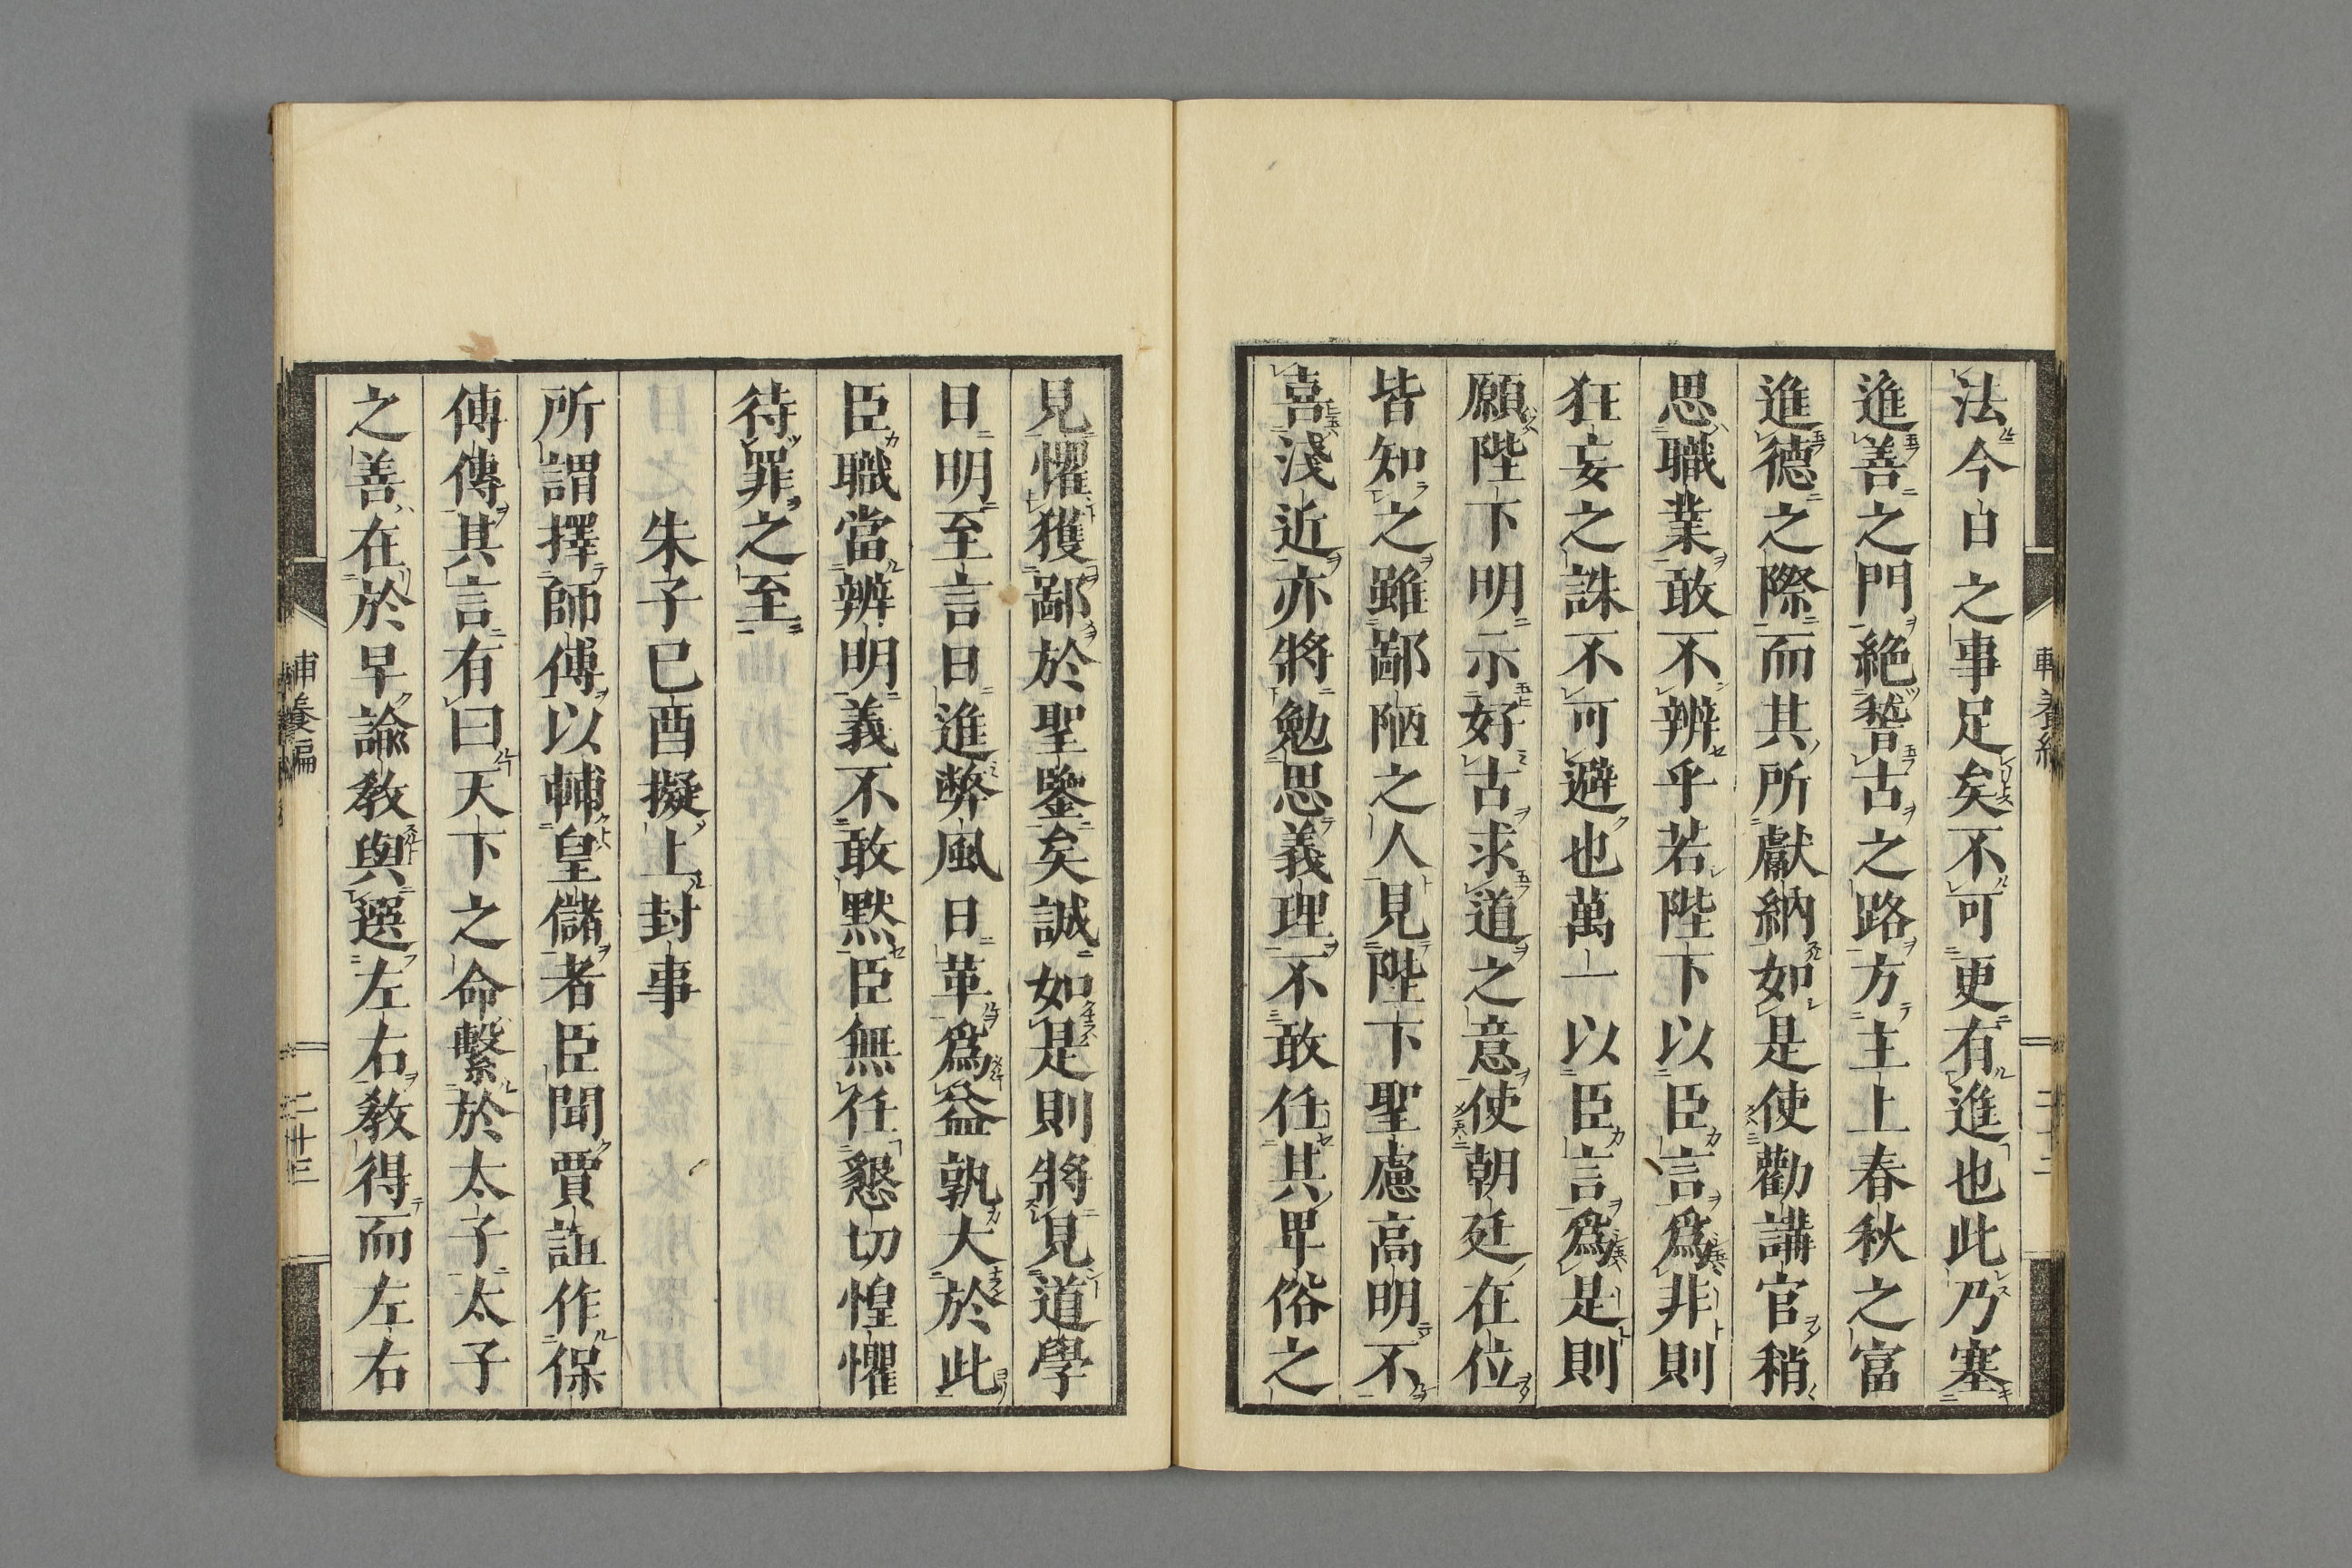 法今日之事足矣不可更有進也此乃塞
進善之門絶稽古之路方主上春秋之富
進德之際而其所獻納如是使勸講官稍
思職業敢不辨乎若陛下以臣言爲非則
狂妄之誅不可避也萬一以臣言爲是則
願陛下明示好古求道之意使朝廷在位
皆知之雖鄙陋之人見陛下聖慮高明不
喜淺近亦將勉思義理不敢任其卑俗之
見懼獲鄙於聖鑒矣誠如是則將見道學
日明至言日進弊風日革爲益孰大於此
臣職當辨明義不敢默臣無任懇切惶懼
待罪之至
朱子己酉擬上封事
所謂擇師傅以輔皇儲者臣聞賈誼作保
傅傳其言有曰天下之命繫於太子太子
之善在於早諭教與選左右教得而左右
輔養編
二十三